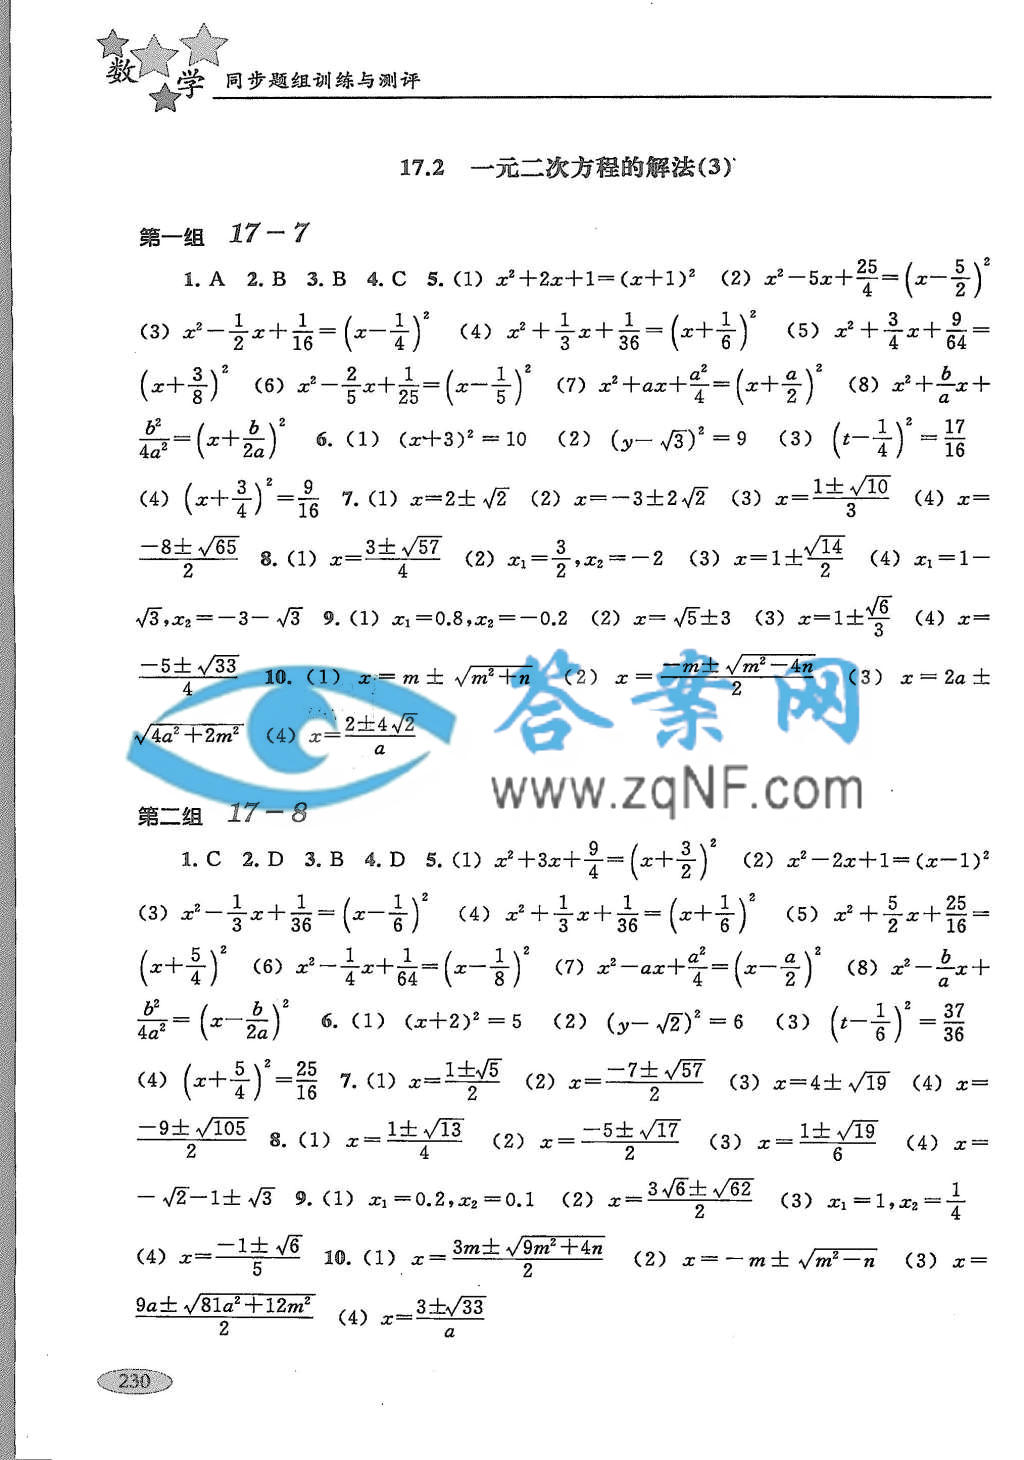 数学 同步题组训练与测评
17.2 一元二次方程的解法(3)
第一组 17-7
1. A 2. B 3. B 4. C 5. (1) x²+2x+1=(x+1)² (2) x²-5x+25/4=(x-5/2)²
(3) x²-1/2x+1/16=(x-1/4)² (4) x²+1/3x+1/36=(x+1/6)² (5) x²+3/4x+9/64=
(x+3/8)² (6) x²-2/5x+1/25=(x-1/5)² (7) x²+ax+a²/4=(x+a/2)² (8) x²+b/ax+
b²/4a²=(x+b/2a)² 6. (1) (x+3)²=10 (2) (y-√3)²=9 (3) (t-1/4)²=17/16
(4) (x+3/4)²=9/16 7. (1) x=2±√2 (2) x=-3±2√2 (3) x=(1±√10)/3 (4) x=
(-8±√65)/2 8. (1) x=(3±√57)/4 (2) x₁=3/2,x₂=-2 (3) x=1±√14/2 (4) x₁=1-
√3,x₂=-3-√3 9. (1) x₁=0.8,x₂=-0.2 (2) x=√5±3 (3) x=1±√6/3 (4) x=
(-5±√33)/4 10. (1) x=m±√(m²+n) (2) x=(-m±√(m²-4n))/2 (3) x=2a±
√(4a²+2m²) (4) x=(2±4√2)/a
答案网
www.zqNF.com
第二组 17-8
1. C 2. D 3. B 4. D 5. (1) x²+3x+9/4=(x+3/2)² (2) x²-2x+1=(x-1)²
(3) x²-1/3x+1/36=(x-1/6)² (4) x²+1/3x+1/36=(x+1/6)² (5) x²+5/2x+25/16=
(x+5/4)² (6) x²-1/4x+1/64=(x-1/8)² (7) x²-ax+a²/4=(x-a/2)² (8) x²-b/ax+
b²/4a²=(x-b/2a)² 6. (1) (x+2)²=5 (2) (y-√2)²=6 (3) (t-1/6)²=37/36
(4) (x+5/4)²=25/16 7. (1) x=(1±√5)/2 (2) x=(-7±√57)/2 (3) x=4±√19 (4) x=
(-9±√105)/2 8. (1) x=(1±√13)/4 (2) x=(-5±√17)/2 (3) x=(1±√19)/6 (4) x=
-√2-1±√3 9. (1) x₁=0.2,x₂=0.1 (2) x=(3√6±√62)/2 (3) x₁=1,x₂=1/4
(4) x=(-1±√6)/5 10. (1) x=(3m±√(9m²+4n))/2 (2) x=-m±√(m²-n) (3) x=
(9a±√(81a²+12m²))/2 (4) x=(3±√33)/a
230